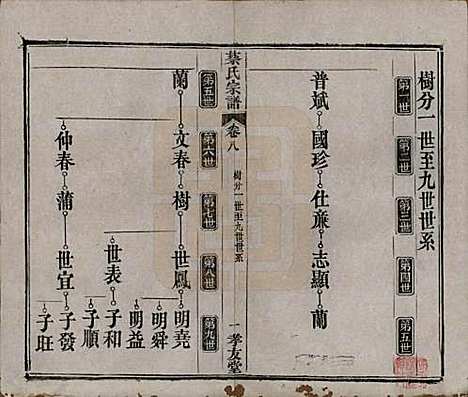 樹分一世至九世世系
第一世 第二世 第三世 第四世 第五世
普斌 國珍 仕廉 志顯 蘭
蔡氏宗譜 卷八 樹分一世至九世世系 一 孝友堂
第五世 第六世 第七世 第八世 第九世
蘭 文春 樹 世鳳 明堯
明舜
明益
世表 子和
子順
仲春 蒲 世宜 子發
子旺